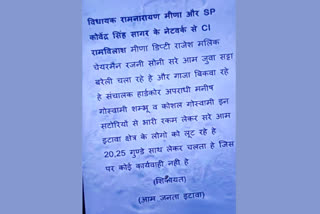 विधायक रामनारायण मीणा और SP
कोवेंद्र सिंह सागर के नेटवर्क से CI
रामविलाश मीणा डिप्टी राजेश मलिक
चेयरमैन रजनी सोनी सरे आम जुवा सट्टा
बरेली चला रहे है और गाजा बिकवा रहे
है संचालक हार्डकोर अपराधी मनीष
गोस्वामी शम्भू व कोशल गोस्वामी इन
सटोरियों से भारी रकम लेकर सरे आम
इटावा क्षेत्र के लोगो को लूट रहे है
20,25 गुण्डे साथ लेकर चलता है जिस
पर कोई कार्यवाही नही है
(शिकायत)
(आम जनता इटावा)